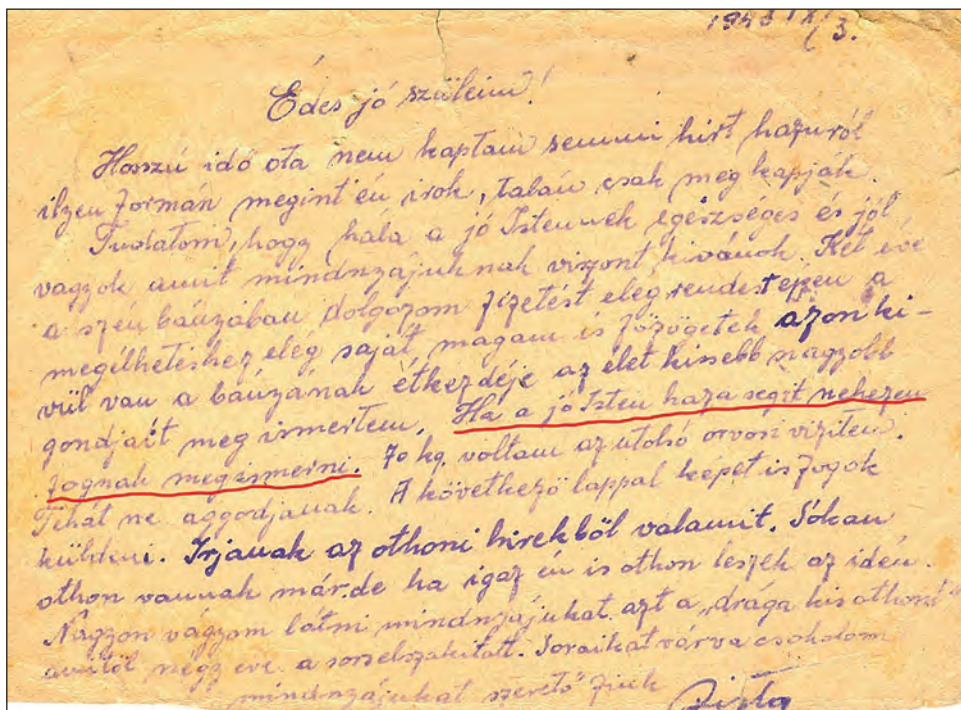 1948 IX/3.
Édes jó szüleim!
Hosszú idő ota nem kaptam semmi hirt hazuról
ilyen formán megint én irok, talán csak meg kapják.
Tudatom, hogy hála a jó Istennek egészséges és jól
vagyok amit mindnyájuknak viszont kivánok. Két éve
a szén bányában dolgozom fizetést elég rendest epen a
megélhetéshez elég saját, magam is főzögetek azon ki-
vül van a bányának étkezdéje az élet kissebb nagyobb
gondjait meg ismertem. Ha a jó Isten haza segit nehezen
fognak megismerni. 70 kg. voltam az utolsó orvosi viziten.
Tehát ne aggodjanak. A következő lappal képet is fogok
küldeni. Irjanak az othoni hirekből valamit. Sokan
othon vannak már. de ha igaz én is othon leszek az idén.
Nagyon vágyom látni mindnyájukat. azt a „drága kis othont"
amitöl négy eve a sors elszakitott. Soraikat várva csokolom
mindnyájukat szerető fiuk